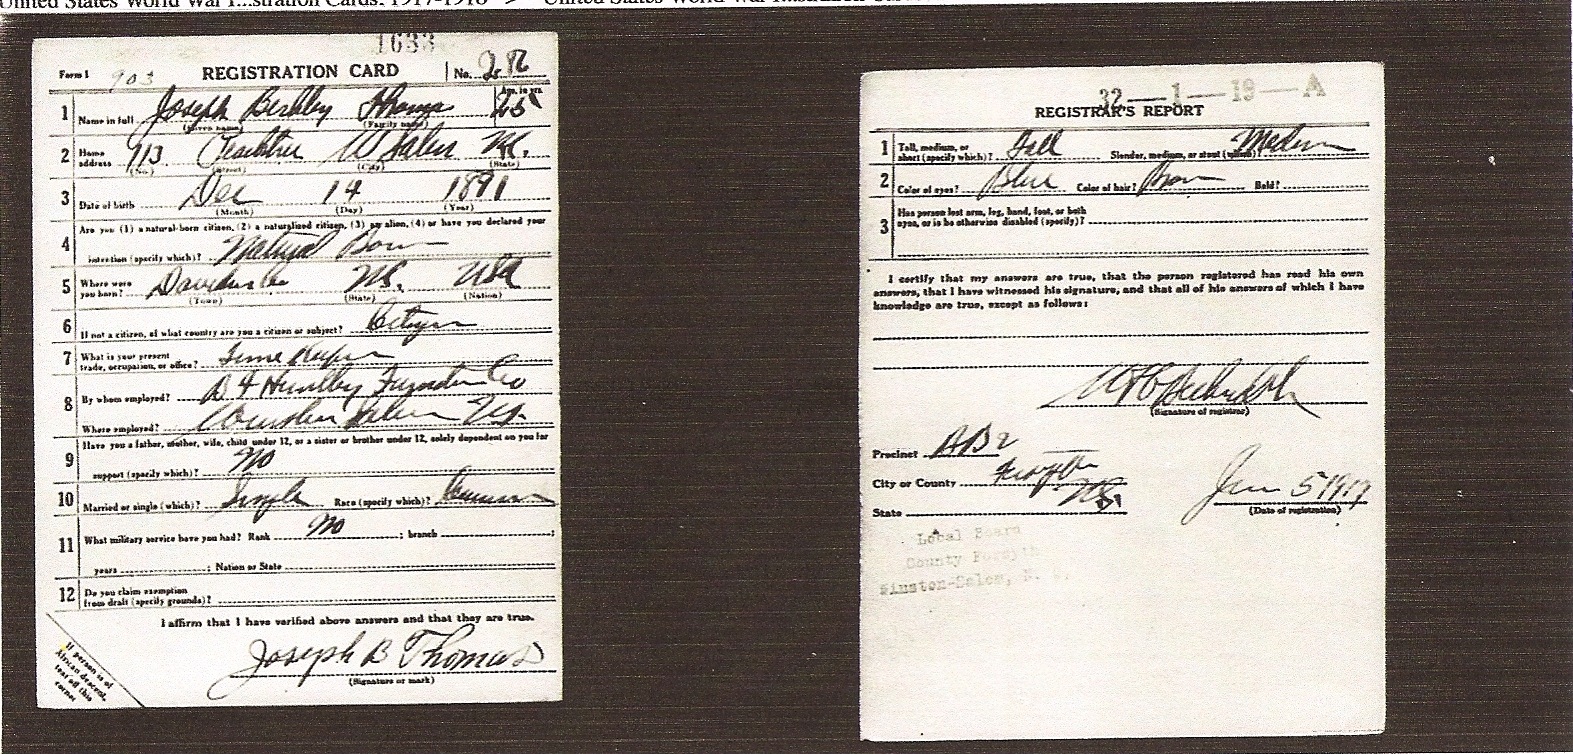 United States World War I...stration Cards, 1917-1918 >
1633
Form 1 903 REGISTRATION CARD No.
1 Name in full Joseph Thomas Age, in yrs. 25
(Given name) (Family name)
2 Home address 713 W Salem N.C.
(No.) (Street) (City) (State)
3 Date of birth Dec 14 1891
(Month) (Day) (Year)
4 Are you (1) a natural-born citizen, (2) a naturalized citizen, (3) an alien, (4) or have you declared your
intention (specify which)? Natural Born
5 Where were you born? Davidson Co N.C. USA
(Town) (State) (Nation)
6 If not a citizen, of what country are you a citizen or subject? Citizen
7 What is your present trade, occupation, or office? Time Keeper
8 By whom employed? B F Huntley Furniture Co
Where employed? Winston Salem N.C.
9 Have you a father, mother, wife, child under 12, or a sister or brother under 12, solely dependent on you for
support (specify which)? No
10 Married or single (which)? Single Race (specify which)? Caucasian
11 What military service have you had? Rank No ; branch ;
years ; Nation or State
12 Do you claim exemption from draft (specify grounds)?
I affirm that I have verified above answers and that they are true.
Joseph B Thomas
(Signature or mark)
If person is of
African descent,
tear off this
corner
32—1—19—A
REGISTRAR'S REPORT
1 Tall, medium, or short (specify which)? Tall Slender, medium, or stout (which)? Medium
2 Color of eyes? Blue Color of hair? Brown Bald?
3 Has person lost arm, leg, hand, foot, or both
eyes, or is he otherwise disabled (specify)?
I certify that my answers are true, that the person registered has read his own
answers, that I have witnessed his signature, and that all of his answers of which I have
knowledge are true, except as follows:
(Signature of registrar)
Precinct
City or County Forsyth
State N.C.
Jun 5 1917
(Date of registration)
Local Board
County Forsyth
Winston-Salem, N. C.